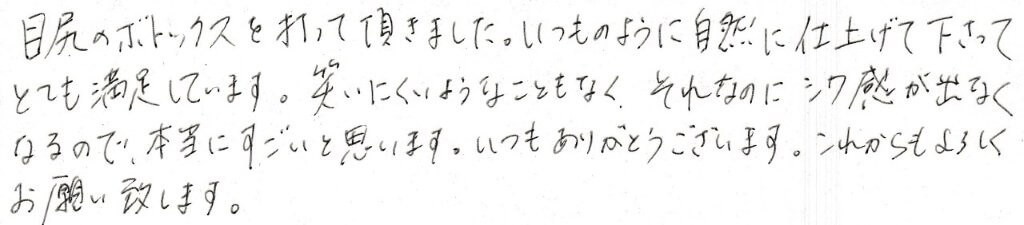 目尻のボトックスを打って頂きました。いつものように自然に仕上げて下さって
とても満足しています。笑いにくいようなこともなく、それなのにシワ感が出なく
なるので、本当にすごいと思います。いつもありがとうございます。これからもよろしく
お願い致します。